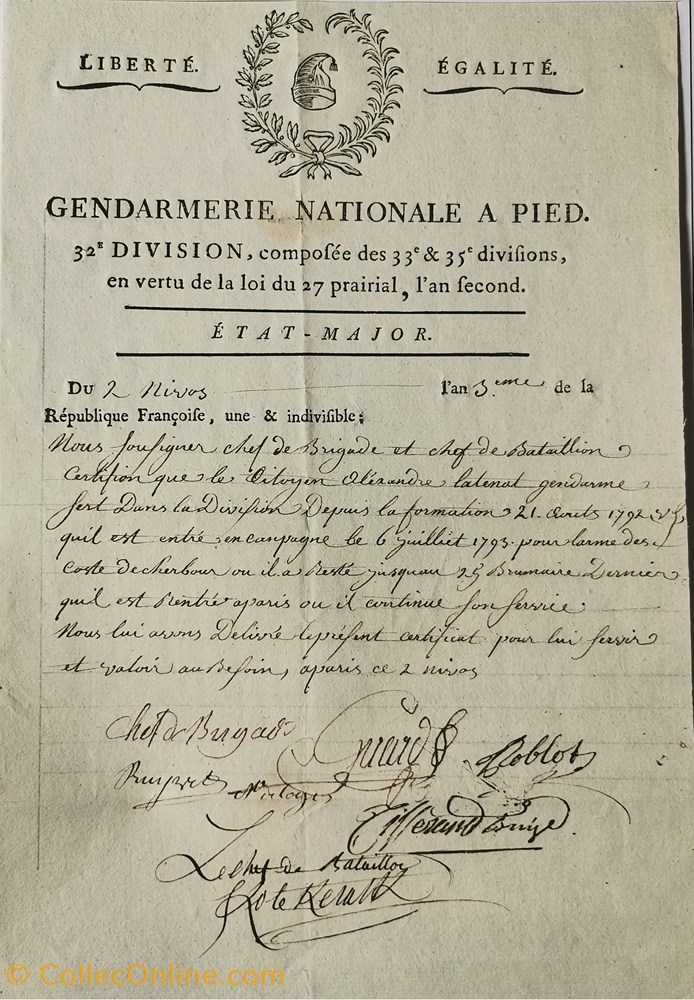 LIBERTÉ.
ÉGALITÉ.
GENDARMERIE NATIONALE A PIED.
32E DIVISION, compoſée des 33e & 35e diviſions,
en vertu de la loi du 27 prairial, l'an ſecond.
ÉTAT-MAJOR.
DU 2 Nivos l'an 3.eme de la
République Françoiſe, une & indiviſible;
Nous souſigner chef de Brigade et chef de Bataillion
Certifion que le Citoyen Aléxandre latenat gendarme
sert Dans la Division Depuis la formation 21. Aouts 1792
quil est entré en canpagne le 6 juilliet 1793. pour larmé des
Coste de cherbour ou il a Resté jusquau 25 Brumaire Dernier
quil est Rentré aparis ou il continue son service.
Nous lui avons Délivré le présent certificat pour lui servir
et valoir au Besoin, aparis ce 2 nivos
Chef de Brigade
Guard
Noblot
Tisserand
Le chef de Bataillon
© CollecOnline.com